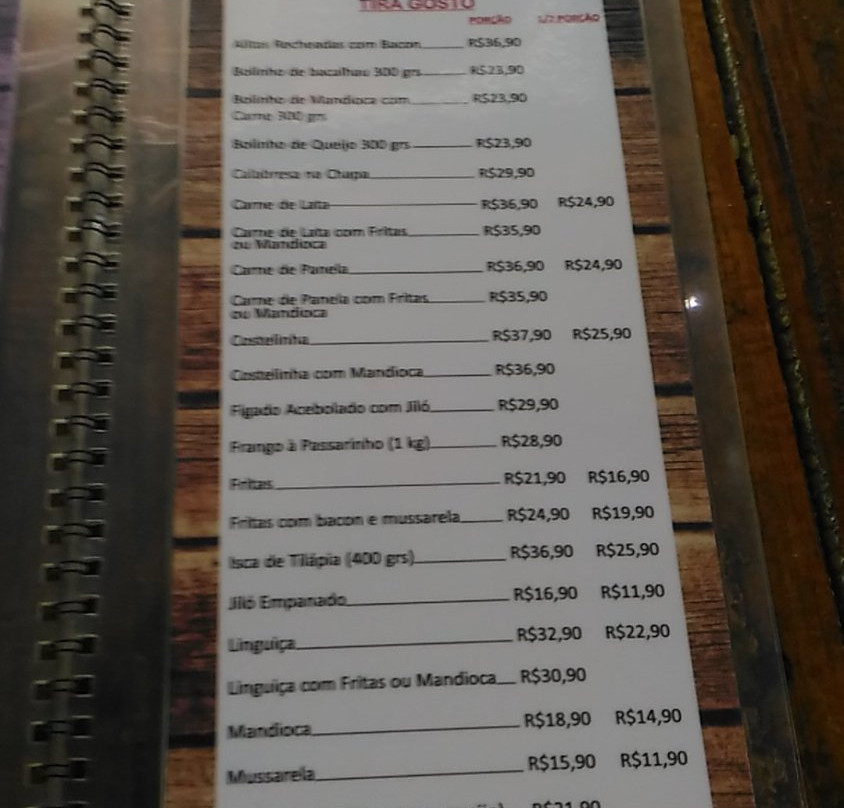 TIRA GOSTO
PORÇÃO 1/2 PORÇÃO
Recheadas com Bacon R$36,90
Bolinho de bacalhau 300 grs R$23,90
Bolinho de Mandioca com R$23,90
Carne 300 grs
Bolinho de Queijo 300 grs R$23,90
Calabresa na Chapa R$29,90
Carne de Lata R$36,90 R$24,90
Carne de Lata com Fritas R$35,90
ou Mandioca
Carne de Panela R$36,90 R$24,90
Carne de Panela com Fritas R$35,90
ou Mandioca
Costelinha R$37,90 R$25,90
Costelinha com Mandioca R$36,90
Figado Acebolado com Jiló R$29,90
Frango à Passarinho (1 kg) R$28,90
Fritas R$21,90 R$16,90
Fritas com bacon e mussarela R$24,90 R$19,90
Isca de Tilápia (400 grs) R$36,90 R$25,90
Jiló Empanado R$16,90 R$11,90
Linguiça R$32,90 R$22,90
Linguiça com Fritas ou Mandioca R$30,90
Mandioca R$18,90 R$14,90
Mussarela R$15,90 R$11,90
R$21,90